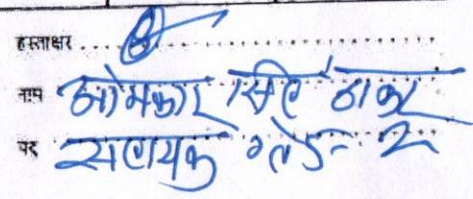 हस्ताक्षर
नाम ओमकार सिंह ठाकुर
पद सहायक ग्रेड- 2